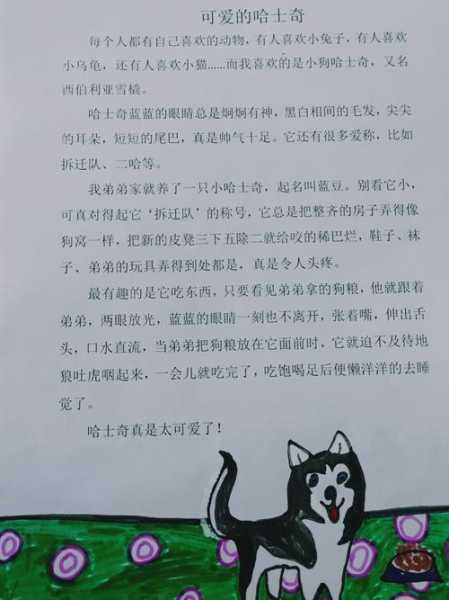 可爱的哈士奇
每个人都有自己喜欢的动物，有人喜欢小兔子，有人喜欢
小乌龟，还有人喜欢小猫......而我喜欢的是小狗哈士奇，又名
西伯利亚雪橇。
哈士奇蓝蓝的眼睛总是炯炯有神，黑白相间的毛发，尖尖
的耳朵，短短的尾巴，真是帅气十足。它还有很多爱称，比如
拆迁队、二哈等。
我弟弟家就养了一只小哈士奇，起名叫蓝豆。别看它小，
可真对得起它‘拆迁队’的称号，它总是把整齐的房子弄得像
狗窝一样，把新的皮凳三下五除二就给咬的稀巴烂，鞋子、袜
子、弟弟的玩具弄得到处都是，真是令人头疼。
最有趣的是它吃东西，只要看见弟弟拿的狗粮，他就跟着
弟弟，两眼放光，蓝蓝的眼睛一刻也不离开，张着嘴，伸出舌
头，口水直流，当弟弟把狗粮放在它面前时，它就迫不及待地
狼吐虎咽起来，一会儿就吃完了，吃饱喝足后便懒洋洋的去睡
觉了。
哈士奇真是太可爱了！